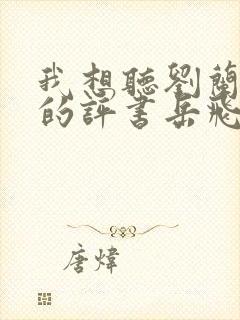 我想聽劉蘭
的評書岳飛
唐煒